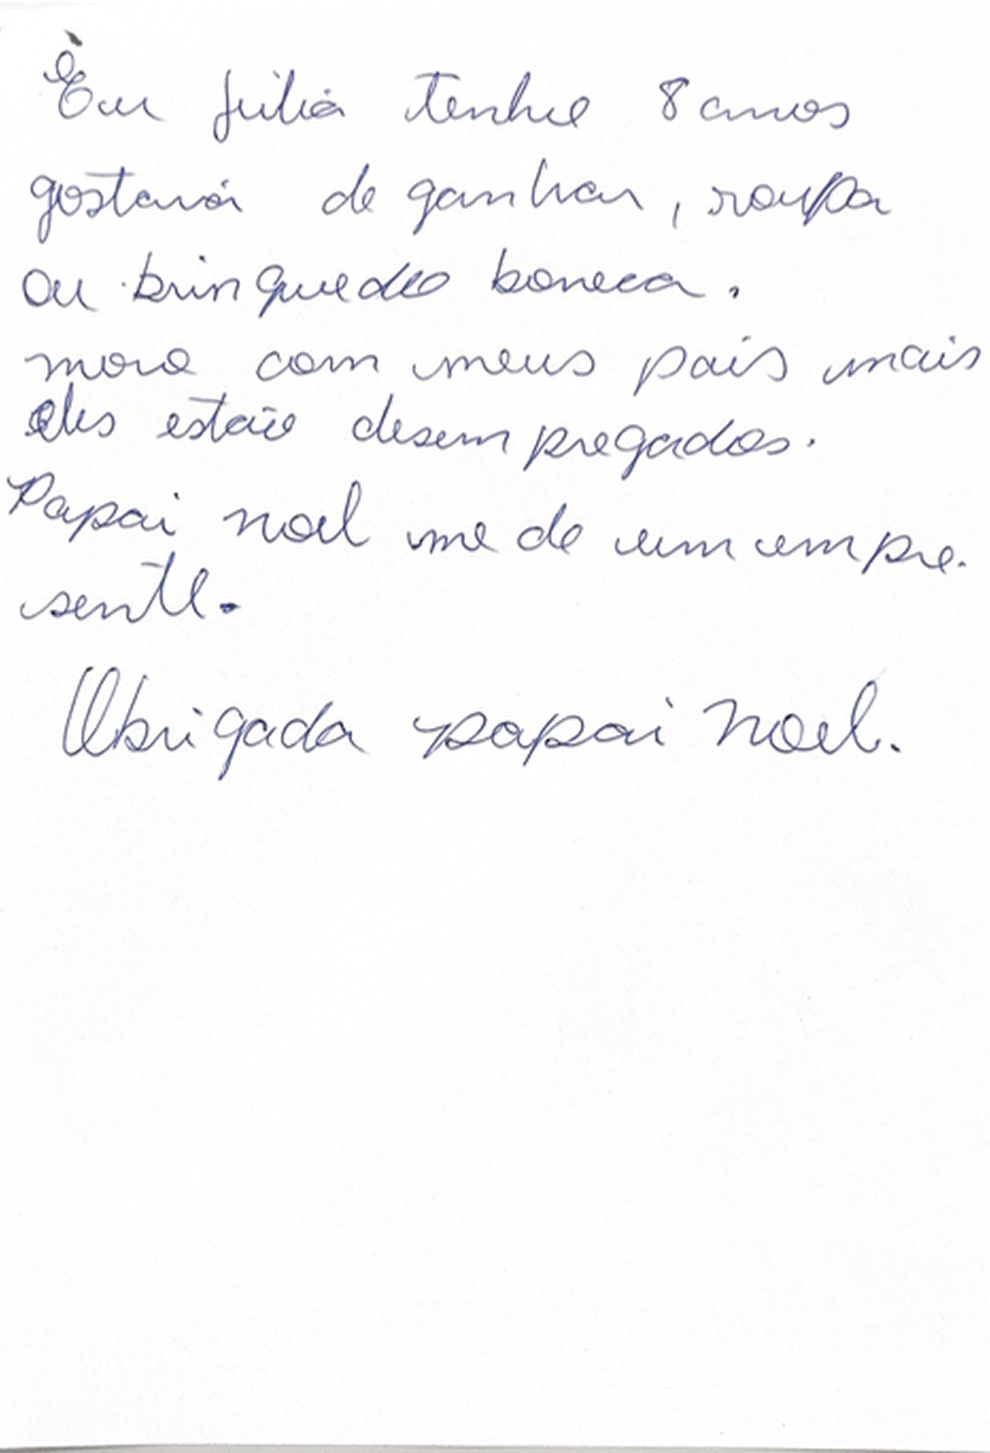 Eu Júlia tenho 8 anos
gostaria de ganhar, roupa
ou brinquedo boneca.
moro com meus pais mais
eles estão desempregados.
Papai noel me de um um pre-
sente.
Obrigada papai Noel.